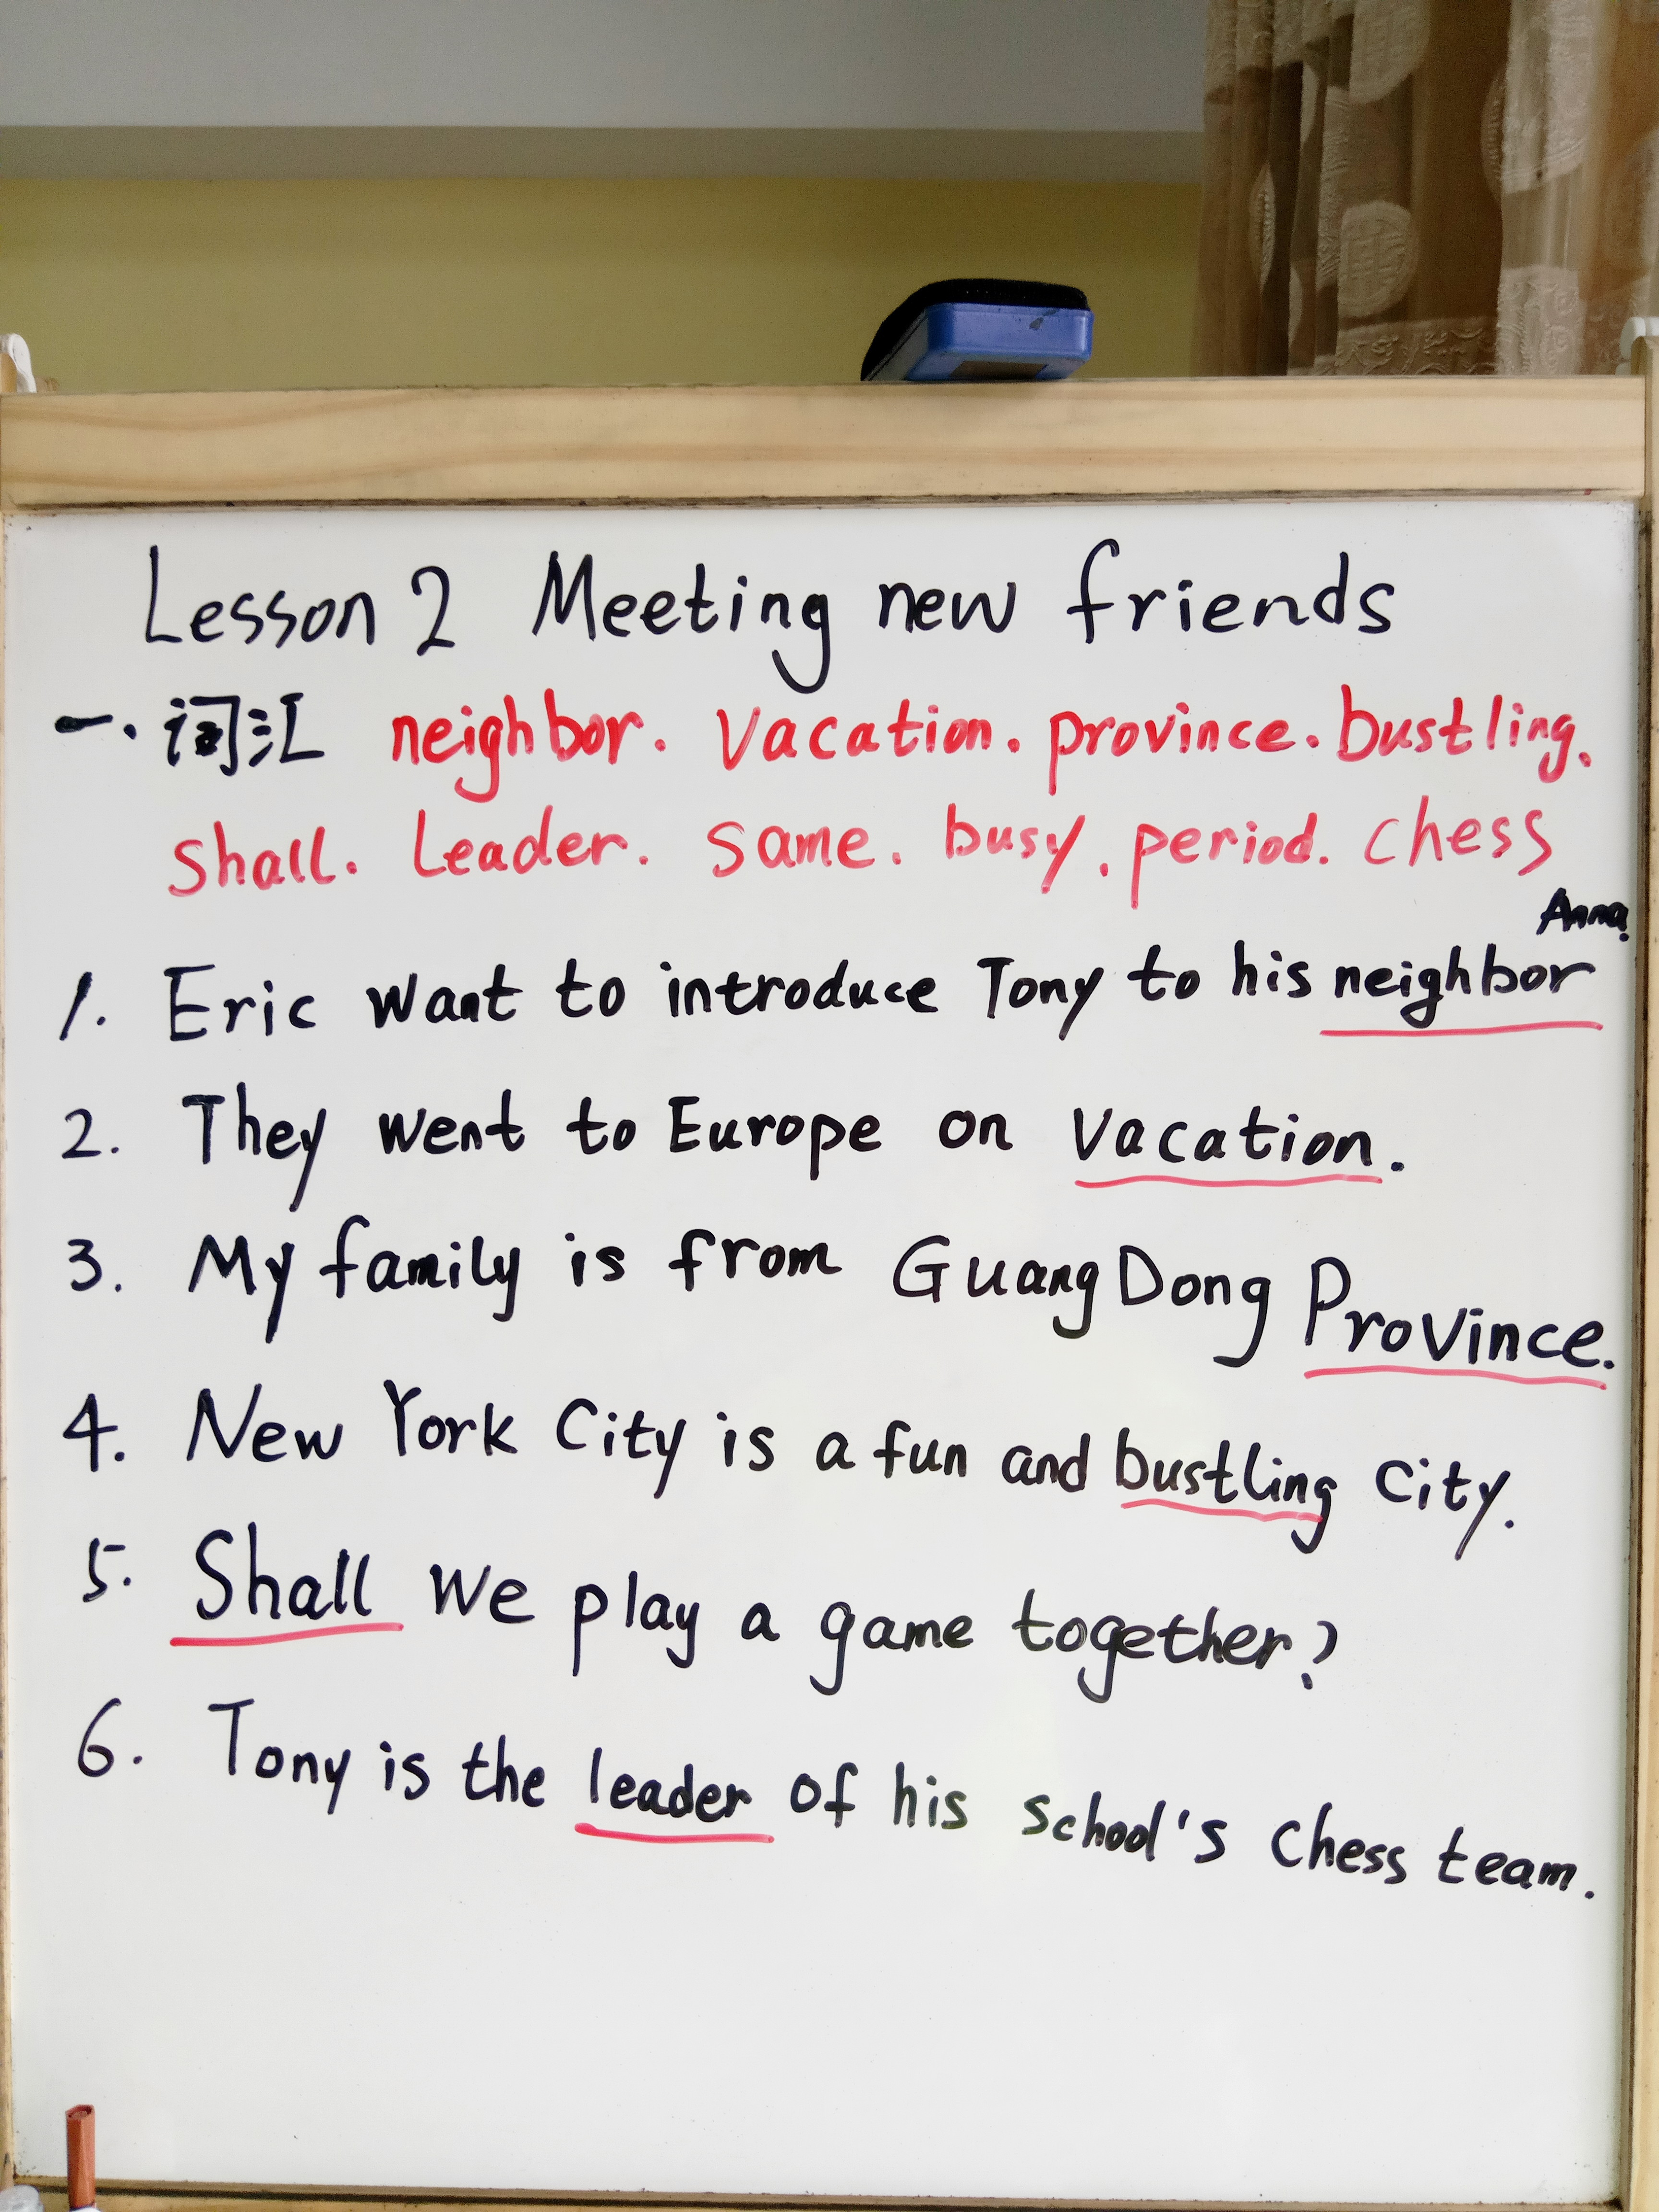 Lesson 2 Meeting new friends
一. 词汇 neighbor. Vacation. province. bustling.
Shall. Leader. same. busy. period. chess
1. Eric want to introduce Tony to his neighbor Anna.
2. They went to Europe on vacation.
3. My family is from GuangDong Province.
4. New York City is a fun and bustling city.
5. Shall we play a game together?
6. Tony is the leader of his school's chess team.